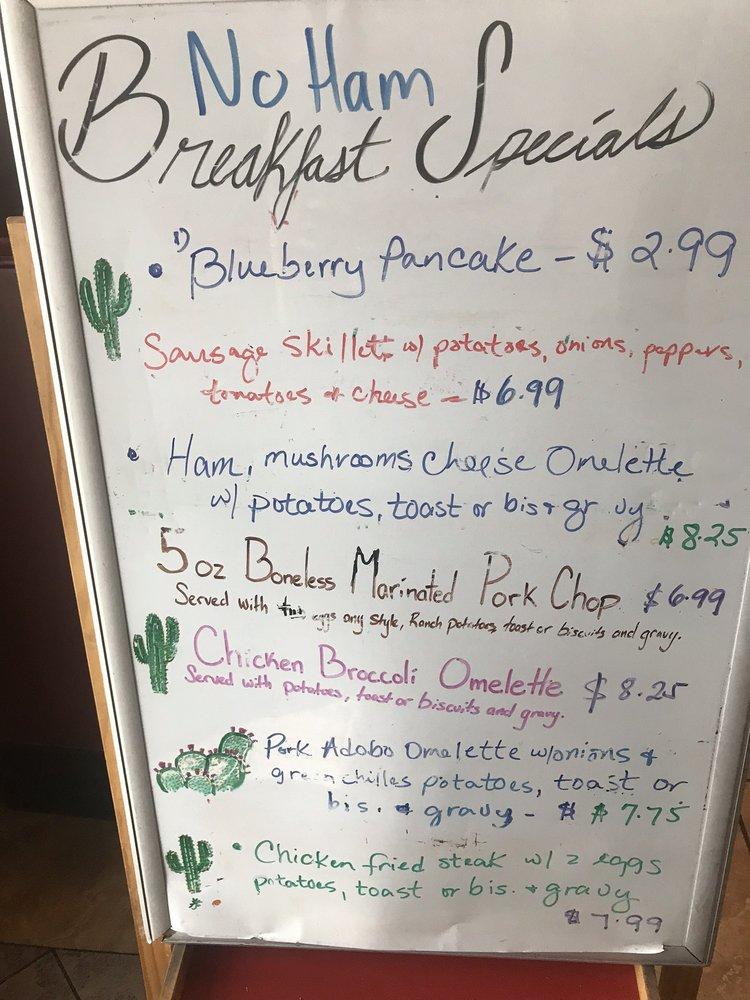 No Ham
Breakfast Specials
• 1) Blueberry Pancake - $ 2.99
Sausage Skillet w/ potatoes, onions, peppers,
tomatoes + cheese - $6.99
• Ham, mushrooms cheese Omelette
w/ potatoes, toast or bis + gr vy
$8.25
5 oz Boneless Marinated Pork Chop $6.99
Served with eggs any style, Ranch potatoes, toast or biscuits and gravy.
Chicken Broccoli Omelette $ 8.25
Served with potatoes, toast or biscuits and gravy.
Pork Adobo Omelette w/onions +
green chilles potatoes, toast or
bis. + gravy - $ $ 7.75
• Chicken fried steak w/ 2 eggs
potatoes, toast or bis. + gravy
$ 7.99